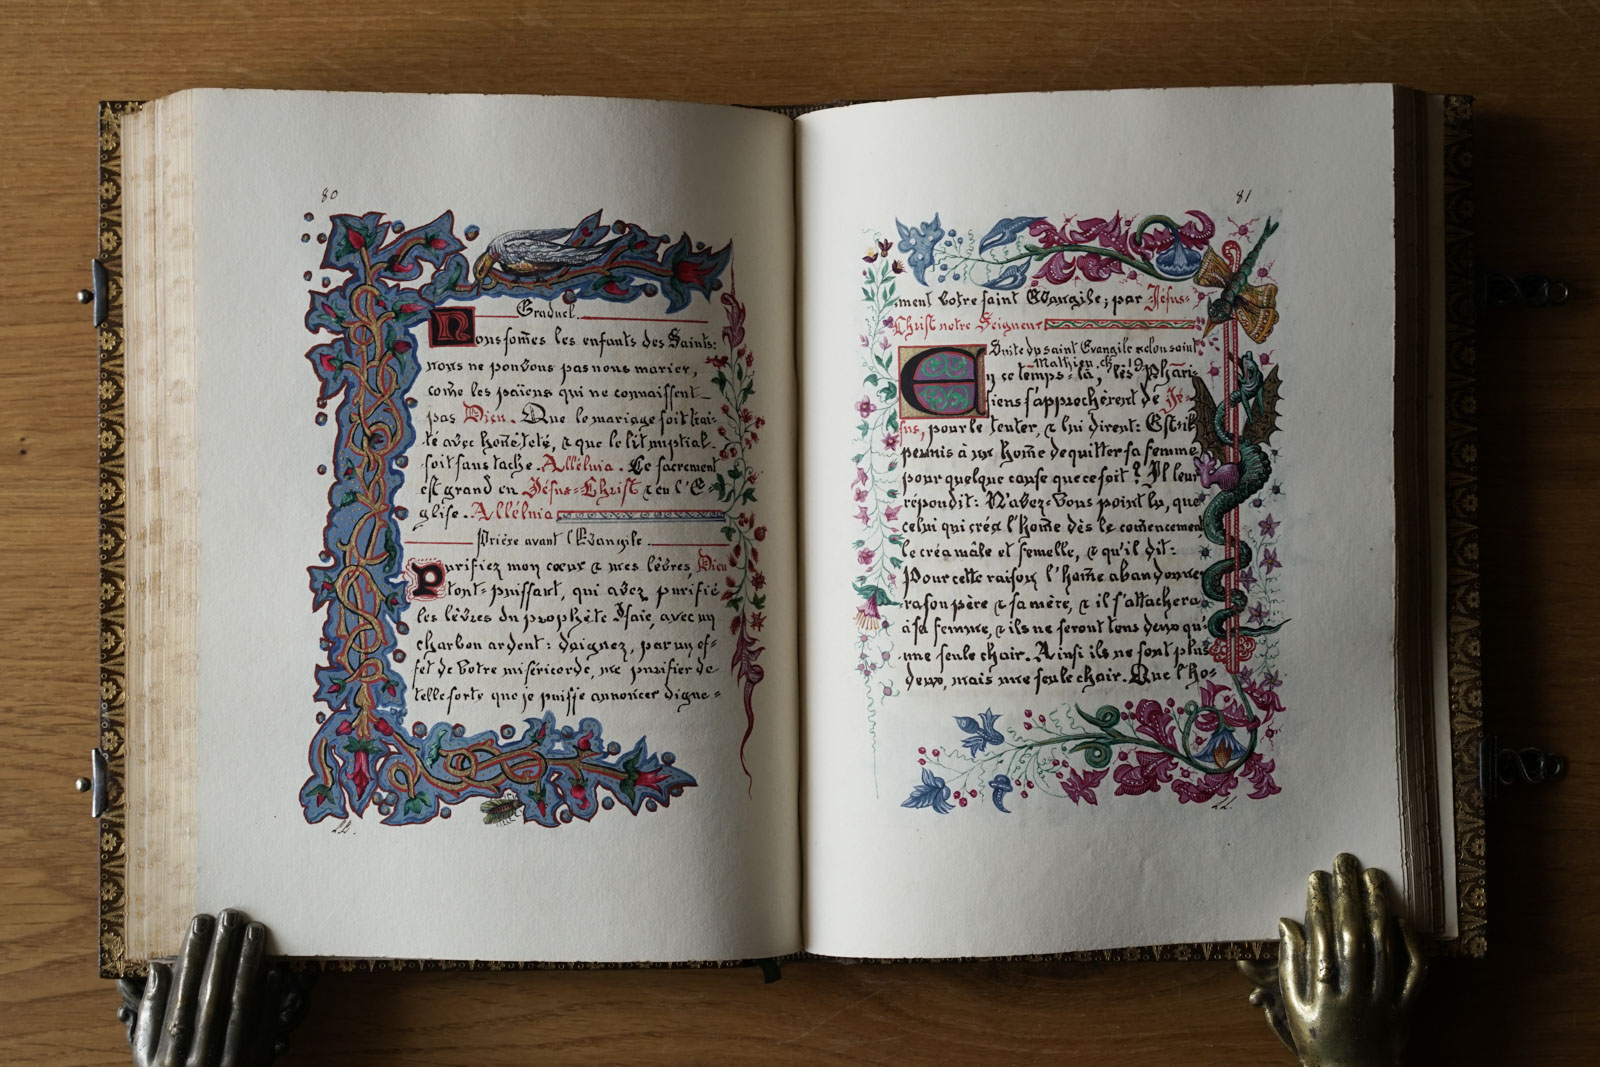 80
Graduel.
Nous som̃es les enfants des Saints:
nous ne pouvons pas nous marier,
com̃e les païens qui ne connaissent
pas Dieu. Que le mariage soit trai-
té avec hon̂eteté, & que le lit nuptial
soit sans tache. Alléluia. Ce sacrement
est grand en Jésus-Christ & en l'E-
glise. Alléluia
Prière avant l'Evangile.
Purifiez mon cœur & mes lèvres, Dieu
tout-puissant, qui avez purifié
les lèvres du prophète Isaïe, avec un
charbon ardent: daignez, par un ef-
fet de votre miséricorde, me purifier de
telle sorte que je puisse annoncer digne-
LL.
81
ment votre saint Evangile; par Jésus-
Christ notre Seigneur
Suite du saint Evangile selon saint
Mathieu, ch. 19.
En ce temps-là, les Phari-
siens s'approchèrent de Jé-
sus, pour le tenter, & lui dirent: Est-il
permis à un hom̃e de quitter sa femme
pour quelque cause que ce soit? Il leur
répondit: N'avez-vous point lu, que
celui qui créa l'hom̃e dès le com̃encement
le créa mâle et femelle, & qu'il dit:
Pour cette raison l'hom̃e abandonne
ra son père & sa mère, & il s'attachera
à sa femme, & ils ne seront tous deux qu'
une seule chair. Ainsi ils ne sont plus
deux, mais une seule chair. Que l'ho-
LL.